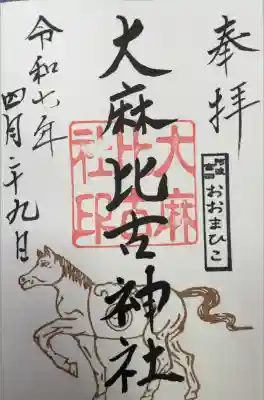 奉拝
阿波一宮
おおまひこ
大麻比古神社
大麻比古社印
令和七年
四月二十九日